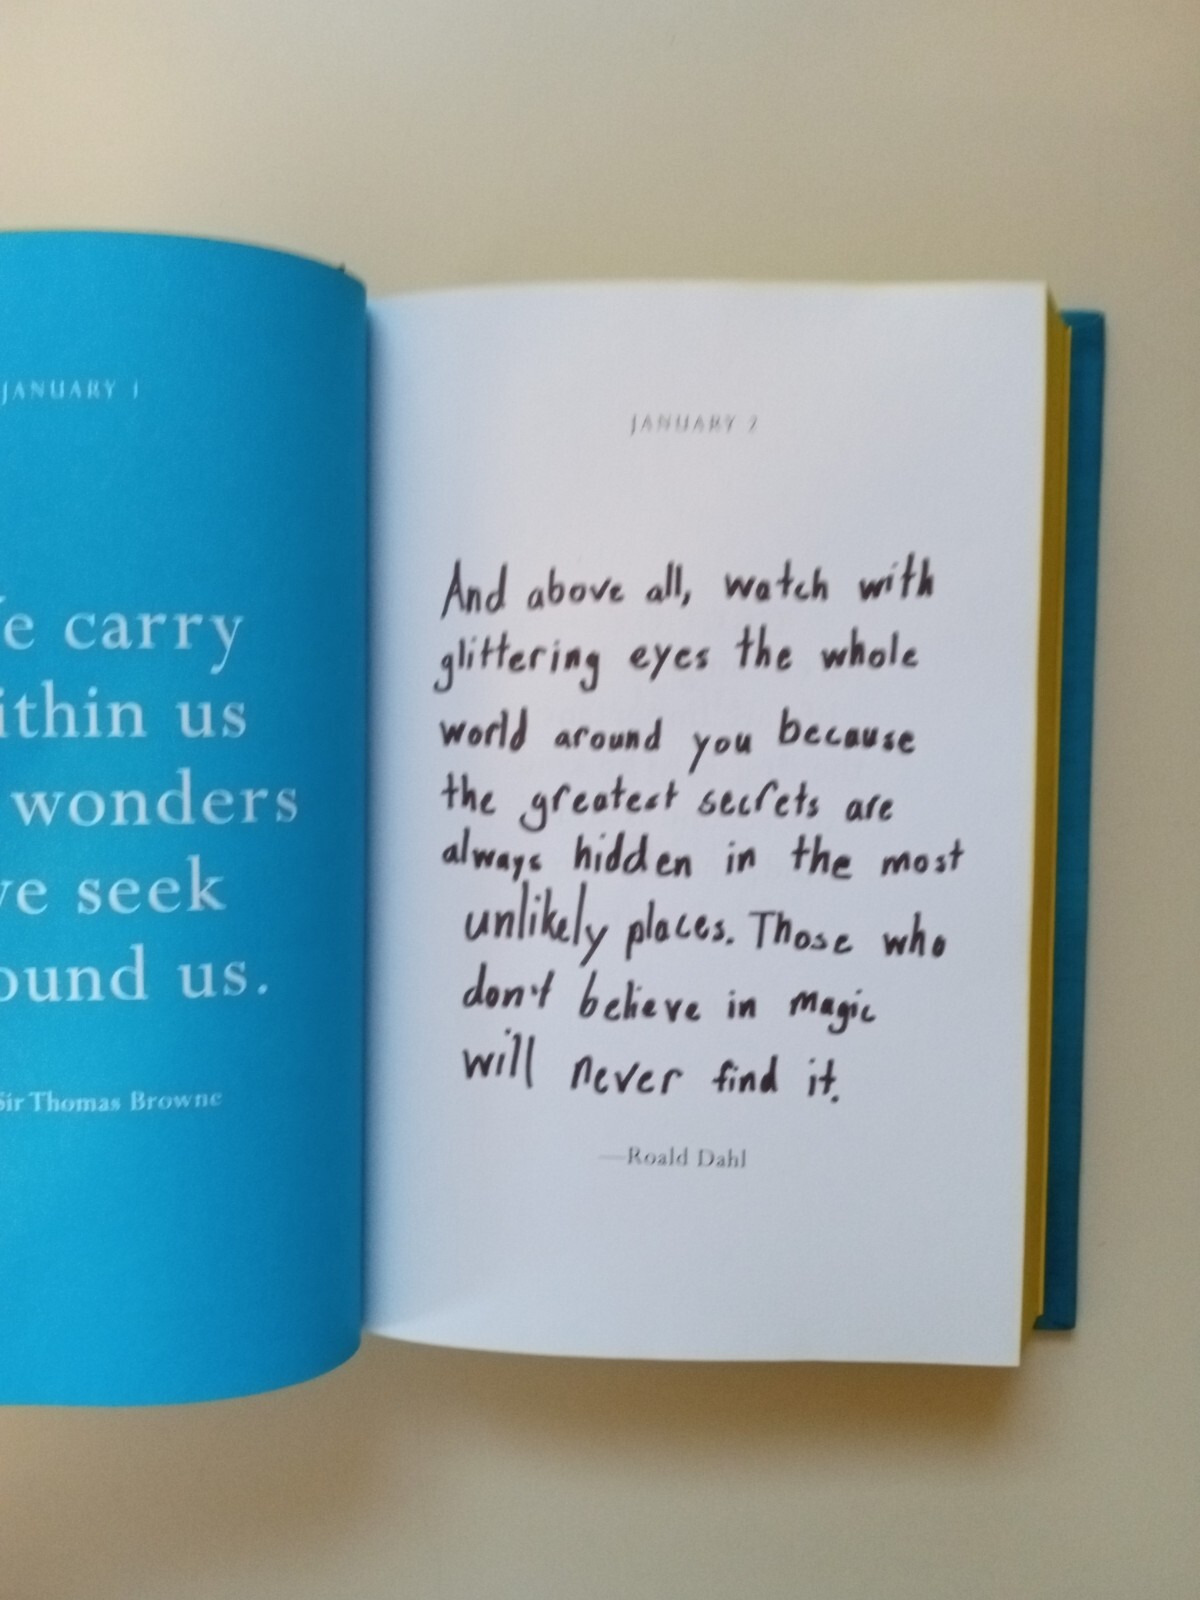 JANUARY 1
carry
us
wonders
seek
us.
Sir Thomas Browne
JANUARY 2
And above all, watch with
glittering eyes the whole
world around you because
the greatest secrets are
always hidden in the most
unlikely places. Those who
don't believe in magic
will never find it.
—Roald Dahl